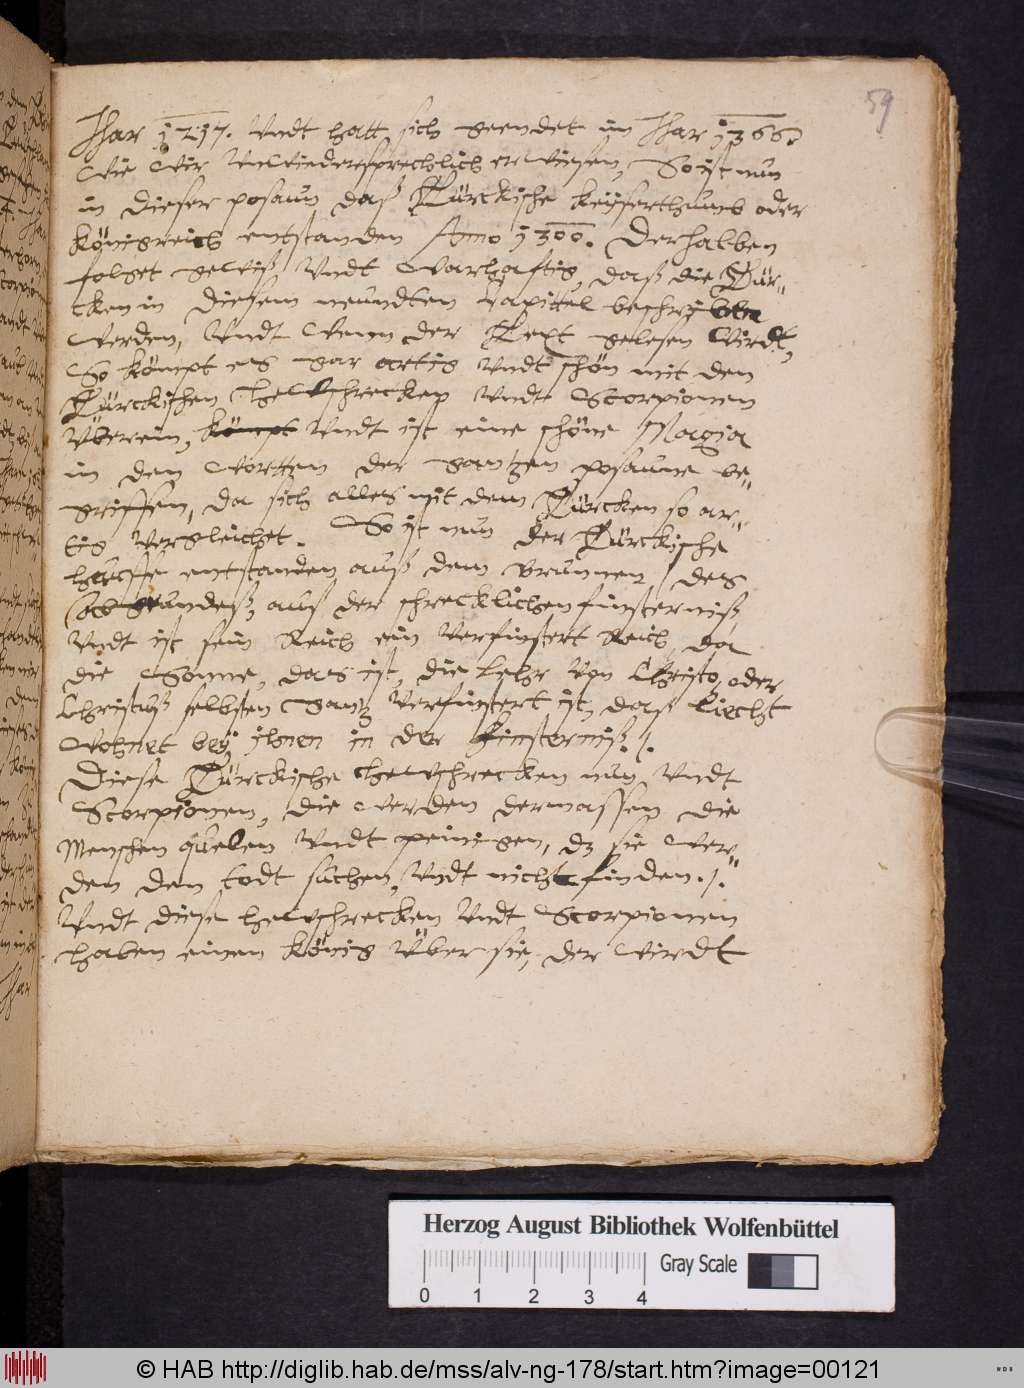 59
Jhar 1217. Vndt hatt sich geendet im Jhar 1366.
Wie Wir VnWiedersprechlich erwiesen, So ist nun
in dieser posaun das Türckische Keyserthumb oder
Königreich entstanden Anno 1300. Derhalben
folget gewiß Vndt Warhafftig, daß die Tür-
cken in diesem neundten Capittel beschriben
Werden, Vndt Wenn der Text gelesen Wirdt,
So kömpt es gar artig Vndt schön mit den
Türckischen Hewschrecken Vndt Scorpionen
Vberein, kömpt Vndt ist eine schöne Magia
in den Wortten der gantzen posaune be-
griffen, da sich alles mit dem Türcken so ar-
tig Vergleichet. So ist nun der Türckische
hauffe entstanden auß dem brunnen, des
abgrundeß, aus der schrecklichen finsterniß
Vndt ist sein Reich ein Verfinstert Reich, da
die Sonne, das ist, die Lehr Von Christo, oder
Christuß selbsten gantz Verfinstert ist, daß Liecht
Wohnet bey ihnen in der finsterniß.
Diese Türckische Hewschrecken nun Vndt
Scorpionen, die Werden dermassen die
Menschen quelen Vndt peinigen, dz sie Wer-
den den todt suchen, Vndt nicht finden.
Vndt diese hewschrecken Vndt Scorpionen
haben einen König Vber sie, der Wirdt
Herzog August Bibliothek Wolfenbüttel
Gray Scale
0 1 2 3 4
© HAB http://diglib.hab.de/mss/alv-ng-178/start.htm?image=00121